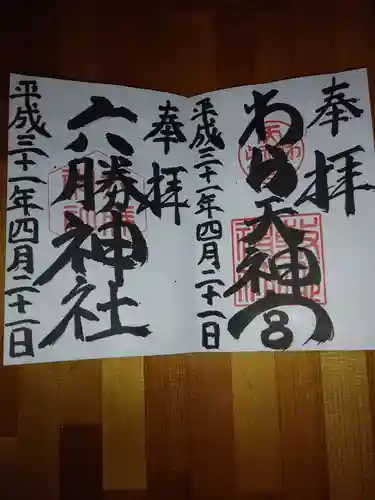 奉拝
わら天神宮
平成三十一年四月二十一日
奉拝
六勝神社
平成三十一年四月二十一日